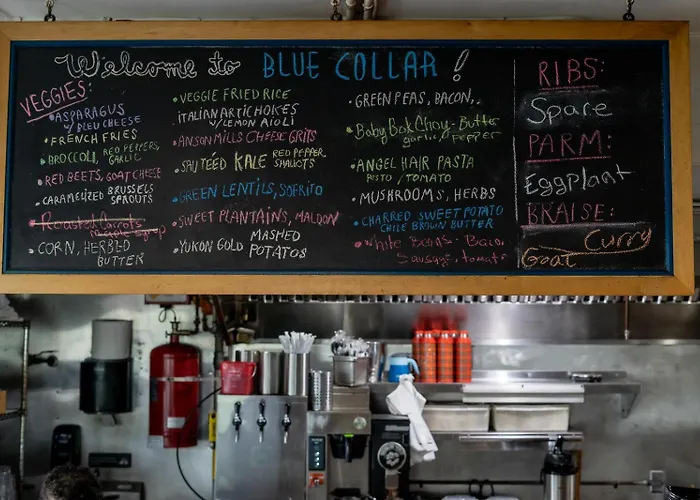 Welcome to BLUE COLLAR!
VEGGIES:
• ASPARAGUS
W/ BLEU CHEESE
• FRENCH FRIES
• BROCCOLI, RED PEPPERS,
GARLIC
• RED BEETS, GOAT CHEESE
• CARAMELIZED BRUSSELS
SPROUTS
• Roasted Carrots
Maple Syrup
• CORN, HERBED
BUTTER
• VEGGIE FRIED RICE
ITALIAN ARTICHOKES
W/ LEMON AIOLI
• ANSON MILLS CHEESE GRITS
• SAUTEED KALE RED PEPPER
SHALLOTS
• GREEN LENTILS, SOFRITO
• SWEET PLANTAINS, MALDON
• YUKON GOLD MASHED
POTATOES
• GREEN PEAS, BACON,
• Baby Bok Choy - Butter
garlic, pepper
• ANGEL HAIR PASTA
PESTO / TOMATO
• MUSHROOMS, HERBS
• CHARRED SWEET POTATO
CHILE BROWN BUTTER
• White Beans - Bacon,
Sausage, tomato
RIBS:
Spare
PARM:
Eggplant
BRAISE:
Curry
Goat